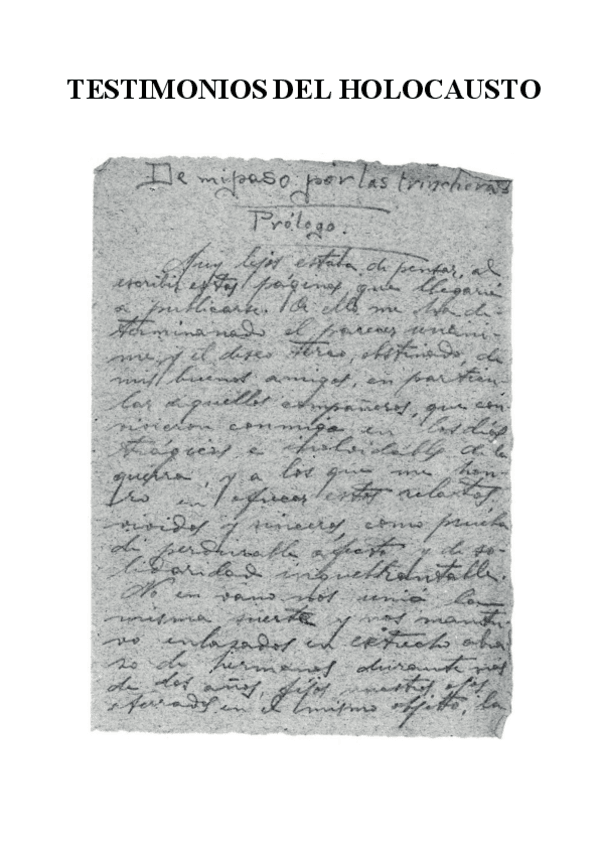 TESTIMONIOS DEL HOLOCAUSTO
De mi paso por las trincheras
Prólogo.
Muy lejos estaba de pensar, al
escribir estas páginas que llegaría
a publicarse. A ello me ha de-
terminado el parecer unáni-
me, y el deseo terco, obstinado, de
mis buenos amigos, en particu-
lar aquellos compañeros, que con-
vivieron conmigo en los días
trágicos e inolvidables de la
guerra, y a los que me hon-
ro en ofrecer estos relatos
vividos y sinceros, como prueba
de perdurable afecto y de so-
lidaridad inquebrantable.
No en vano nos unió la
misma suerte y nos mantu-
vo enlazados en estrecho abra-
zo de hermanos durante más
de dos años, fijos nuestros ojos,
aterrados, en el mismo objeto, la